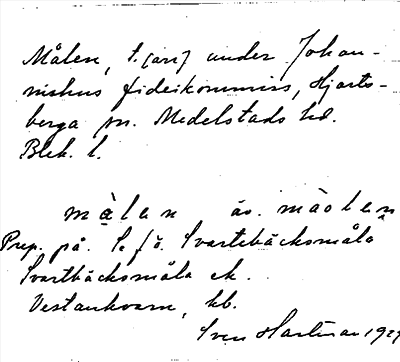 Målen, t. (arr) under Johan-
nishus fideikommiss, Hjorts-
berga sn. Medelstads hd.
Blek. l.
målen äv. måolen
Prep. på. S. fö. Svartebäcksmåla
Svartbäcksmåla ek.
Vestankvarn, hb.
Sven Hartman 1929